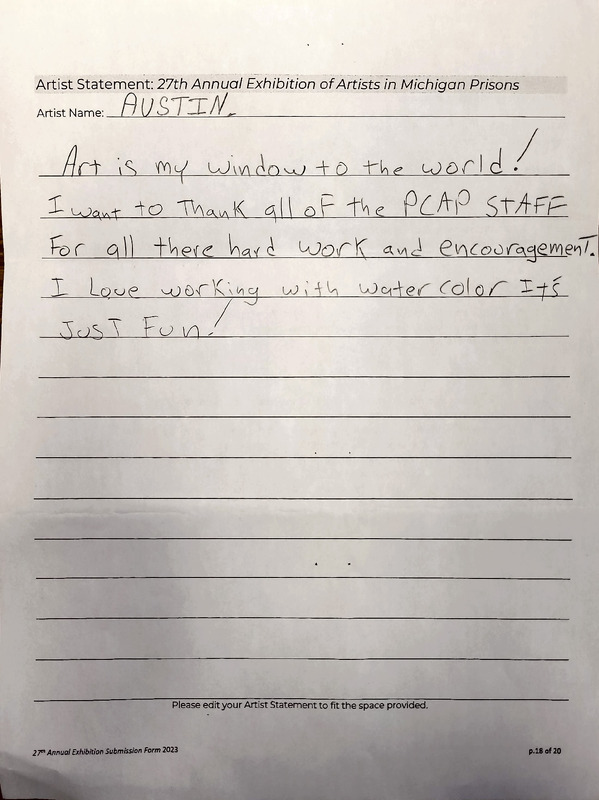 Artist Statement: 27th Annual Exhibition of Artists in Michigan Prisons
Artist Name: AUSTIN.
Art is my window to the world!
I want to Thank all of the PCAP STAFF
For all there hard work and encouragement.
I Love working with water color It's
JUST Fun!
Please edit your Artist Statement to fit the space provided.
27th Annual Exhibition Submission Form 2023
p.18 of 20